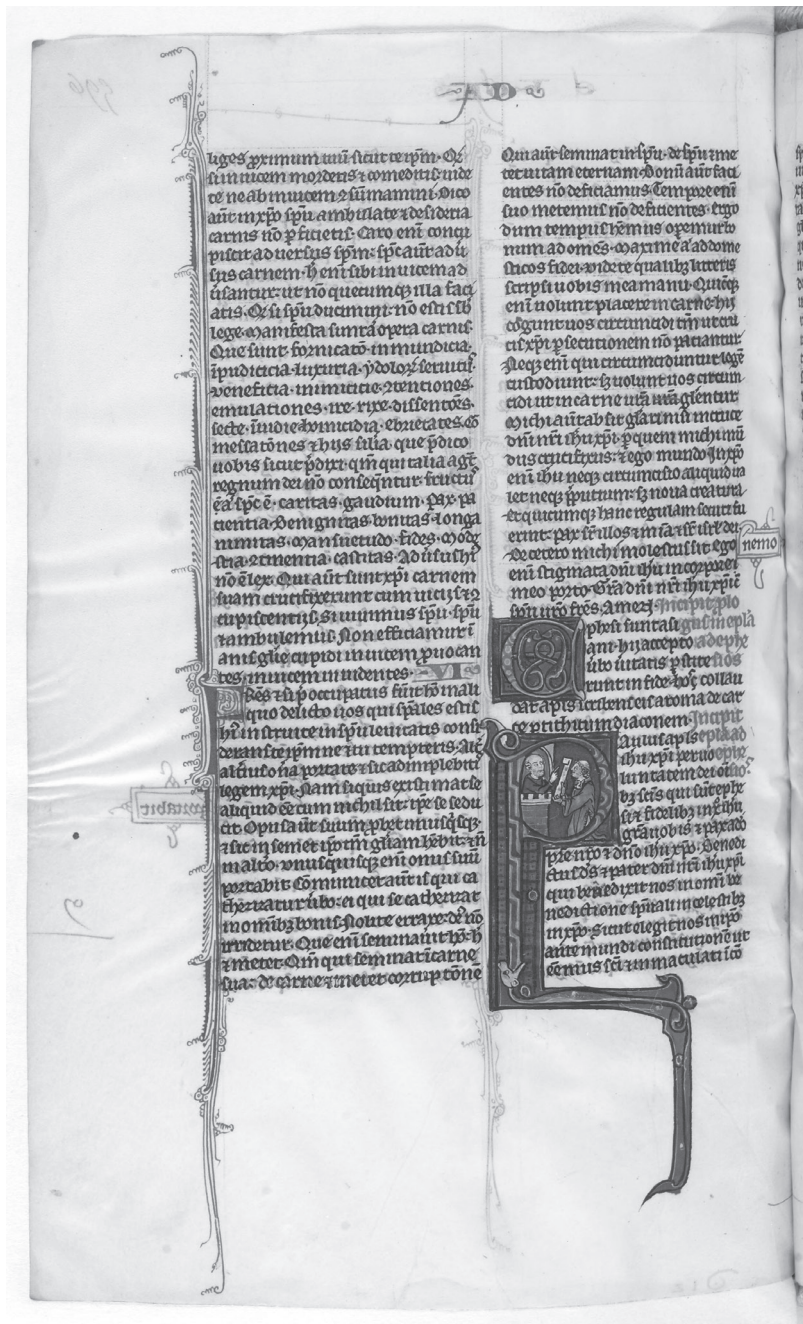 AD
liges proximum tuum sicut te ipm. Qđ
si inuicem mordetis ⁊ comeditis: uide
te ne ab inuicem ꝯsumamini. Dico
aūt in xp̄o sp̄u ambulate ⁊ desideria
carnis nō ꝑficietis. Caro eni᷈ concu
piscit aduersus sp̄m: sp̄c aūt adu
sus carnem. h̄ eni᷈ sibi inuicem ad
ūsantur: ut nō quecumqꝫ illa faci
atis. Qđ si sp̄u ducimini: nō estis sb̄
lege. Manifesta sunt aū opera carnis.
Que sunt fornicatō. inmundicia.
īpudicitia. luxuria. ydoloꝝ seruitus.
ueneficia. inimicitie. ꝯtentiones.
emulationes. ire. rixe. dissentōes.
secte. īuidie. homicidia. ebrietates. cō
messatōnes ⁊ hiis silia. que p̄dico
uobis sicut p̄dixi. qm̄ qui talia agūt
regnum dei nō consequntur. fructus
aū sp̄c ē. caritas. gaudium. pax. pa
cientia. Benignitas. bonitas. longa
nimitas. Mansuetudo. fides. Mode
stia. ꝯtinentia. castitas. Adūsus hi᷈
nō ē lex. Qui aūt sunt xp̄i carnem
suam crucifixerunt cum uiciis ⁊ ꝯ
cupiscentiis. Si uiuimus sp̄u. sp̄u
⁊ ambulemus. Non efficiamur i᷈
anis glīe cupidi inuicem prouocan
tes. inuicem inuidentes. VI
Fr̄es ⁊ si p̄occupatus fūit hō in ali
quo delicto uos qui sp̄ales estis
h᷈i instruite in sp̄u leuitatis consi
derans te ipm ne ⁊ tu tempteris. Altē
alterius oña portate ⁊ sic adimplebitis
legem xp̄i. Nam si quis existimat se
aliquid ēe cum nichil sit: ipse se sedu
cit. Opus aūt suum ꝓbet unusqisqꝫ
⁊ sic in semet ipo tm̄ gliam hēbit: ⁊ n̄
in altō. Vnusquisqꝫ eni᷈ onus suū
portabit
portabit. Communicet aūt is qui ca
thezizatur ūbo: ei qui se cathezizat
in omībꝫ bonis. Nolite errare: ds̄ nō
irridetur. Que eni᷈ seminauit hō: h̄
⁊ metet. Qm̄ qui seminat i᷈ carne
sua: de carne ⁊ metet corruptōnē
Qui aūt seminat in sp̄u: de sp̄u ⁊ me
tet uitam eternam. Bonū aūt faci
entes nō deficiamus. Tempore eni᷈
suo metemus nō deficientes. Ergo
dum tempus hēmus operemur bo
num ad omēs. Maxime aū ad dome
sticos fidei. Videte qualibꝫ litteris
scripsi uobis mea manu. Quicūqꝫ
eni᷈ uolunt placere in carne: hii
cogunt uos circumcidi tm̄ ut cru
cis xp̄i ꝑsecutionem nō paciantur.
Neqꝫ eni᷈ qui circumciduntur legē
custodiunt: sꝫ uolunt uos circum
cidi ut in carne urā glentur.
Michi aūt absit gl̄ari nisi in cruce
dn̄i nr̄i ih̄u xp̄i. ꝑ quem michi mū
dus crucifixus: ⁊ ego mundo. In xp̄o
eni᷈ ih̄u neqꝫ circumcisio aliquid ua
let neqꝫ p̄putium: sꝫ noua creatura
Et quicumqꝫ hanc regulam secuti fu
erint: pax sr̄ illos ⁊ mīa ⁊ sr̄ isrl̄ dei.
De cetero nemo
michi molestus sit. Ego
eni᷈ stigmata dn̄i ih̄u in corpore
meo porto. Grā dn̄i nr̄i ih̄u xp̄i cū
sp̄u uro fr̄es. Amen. Incipit plo
Ephesi sunt asi gus in eplā
ani. hii accepto ad ephe
ūbo uitatis ꝑstite sios
runt in fide. hos collau
dat apls scribens eis a roma de car
ce ꝑ tithicum diaconem. Incipit
Paulus apls epla ad
ih̄u xp̄i per uo ephe
luntatem dei oī sios.
bꝫ scīs qui sūt ephe
si ⁊ fidelibꝫ in xp̄o ih̄u.
grā uobis ⁊ pax a dō
pr̄e nr̄o ⁊ dn̄o ih̄u xp̄o. Benedi
ctus ds̄ ⁊ pater dn̄i nr̄i ih̄u xp̄i
qui benedixit nos in omi᷈ be
nedictione sp̄itali in celestibꝫ
in xp̄o. Sicut elegit nos in ipo
ante mundi constitutionē ut
ēemus scī ⁊ inmaculati i᷈ cō